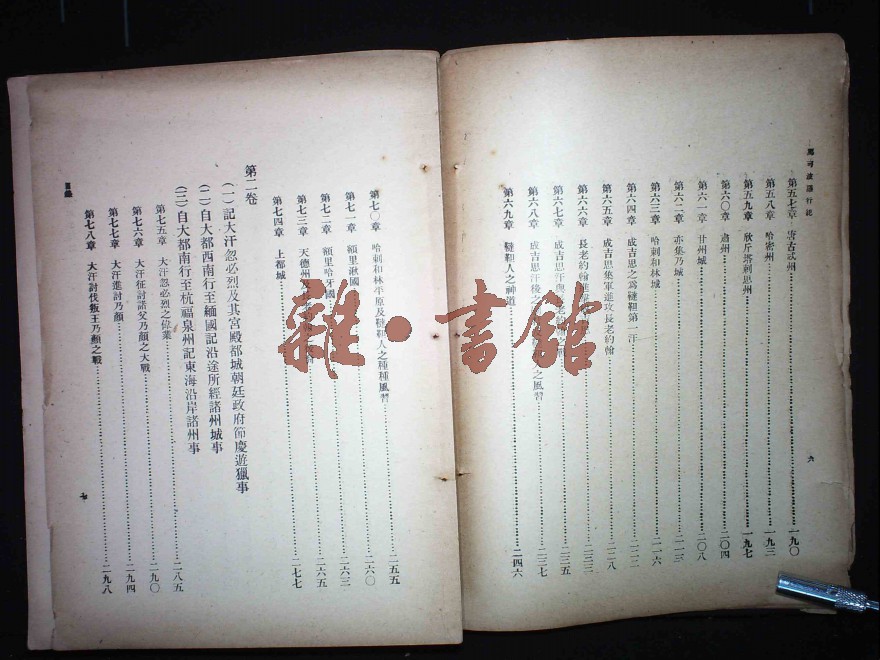 馬可波羅行紀
第五七章 唐古忒州 一九〇
第五八章 哈密州 一九三
第五九章 欣斤塔剌思州 一九七
第六〇章 肅州 二〇四
第六一章 甘州城 二〇八
第六二章 亦集乃城 二一三
第六三章 哈剌和林城 二一六
第六四章 成吉思之爲韃靼第一汗
第六五章 成吉思集軍進攻長老約翰 二一八
第六六章 長老約翰進
第六七章 成吉思汗與 老約翰 二二五
第六八章 成吉思汗後之 人之風習 二三七
第六九章 韃靼人之神道 二四六
六
第七〇章 哈剌和林平原及韃靼人之種種風習 二五五
第七一章 額里湫國 二六〇
第七二章 額里哈牙國 二六五
第七三章 天德州及
第七四章 上都城 二七七
第二卷
(一)記大汗忽必烈及其宮殿都城朝廷政府節慶遊獵事
(二)自大都西南行至緬國記沿途所經諸州城事
(三)自大都南行至杭福泉州記東海沿岸諸州事
第七五章 大汗忽必烈之偉業 二八五
第七六章 大汗征討諸父乃顏之大戰 二九〇
第七七章 大汗進討乃顏 二九四
第七八章 大汗討伐叛王乃顏之戰 二九八
目錄
七
雜·書館